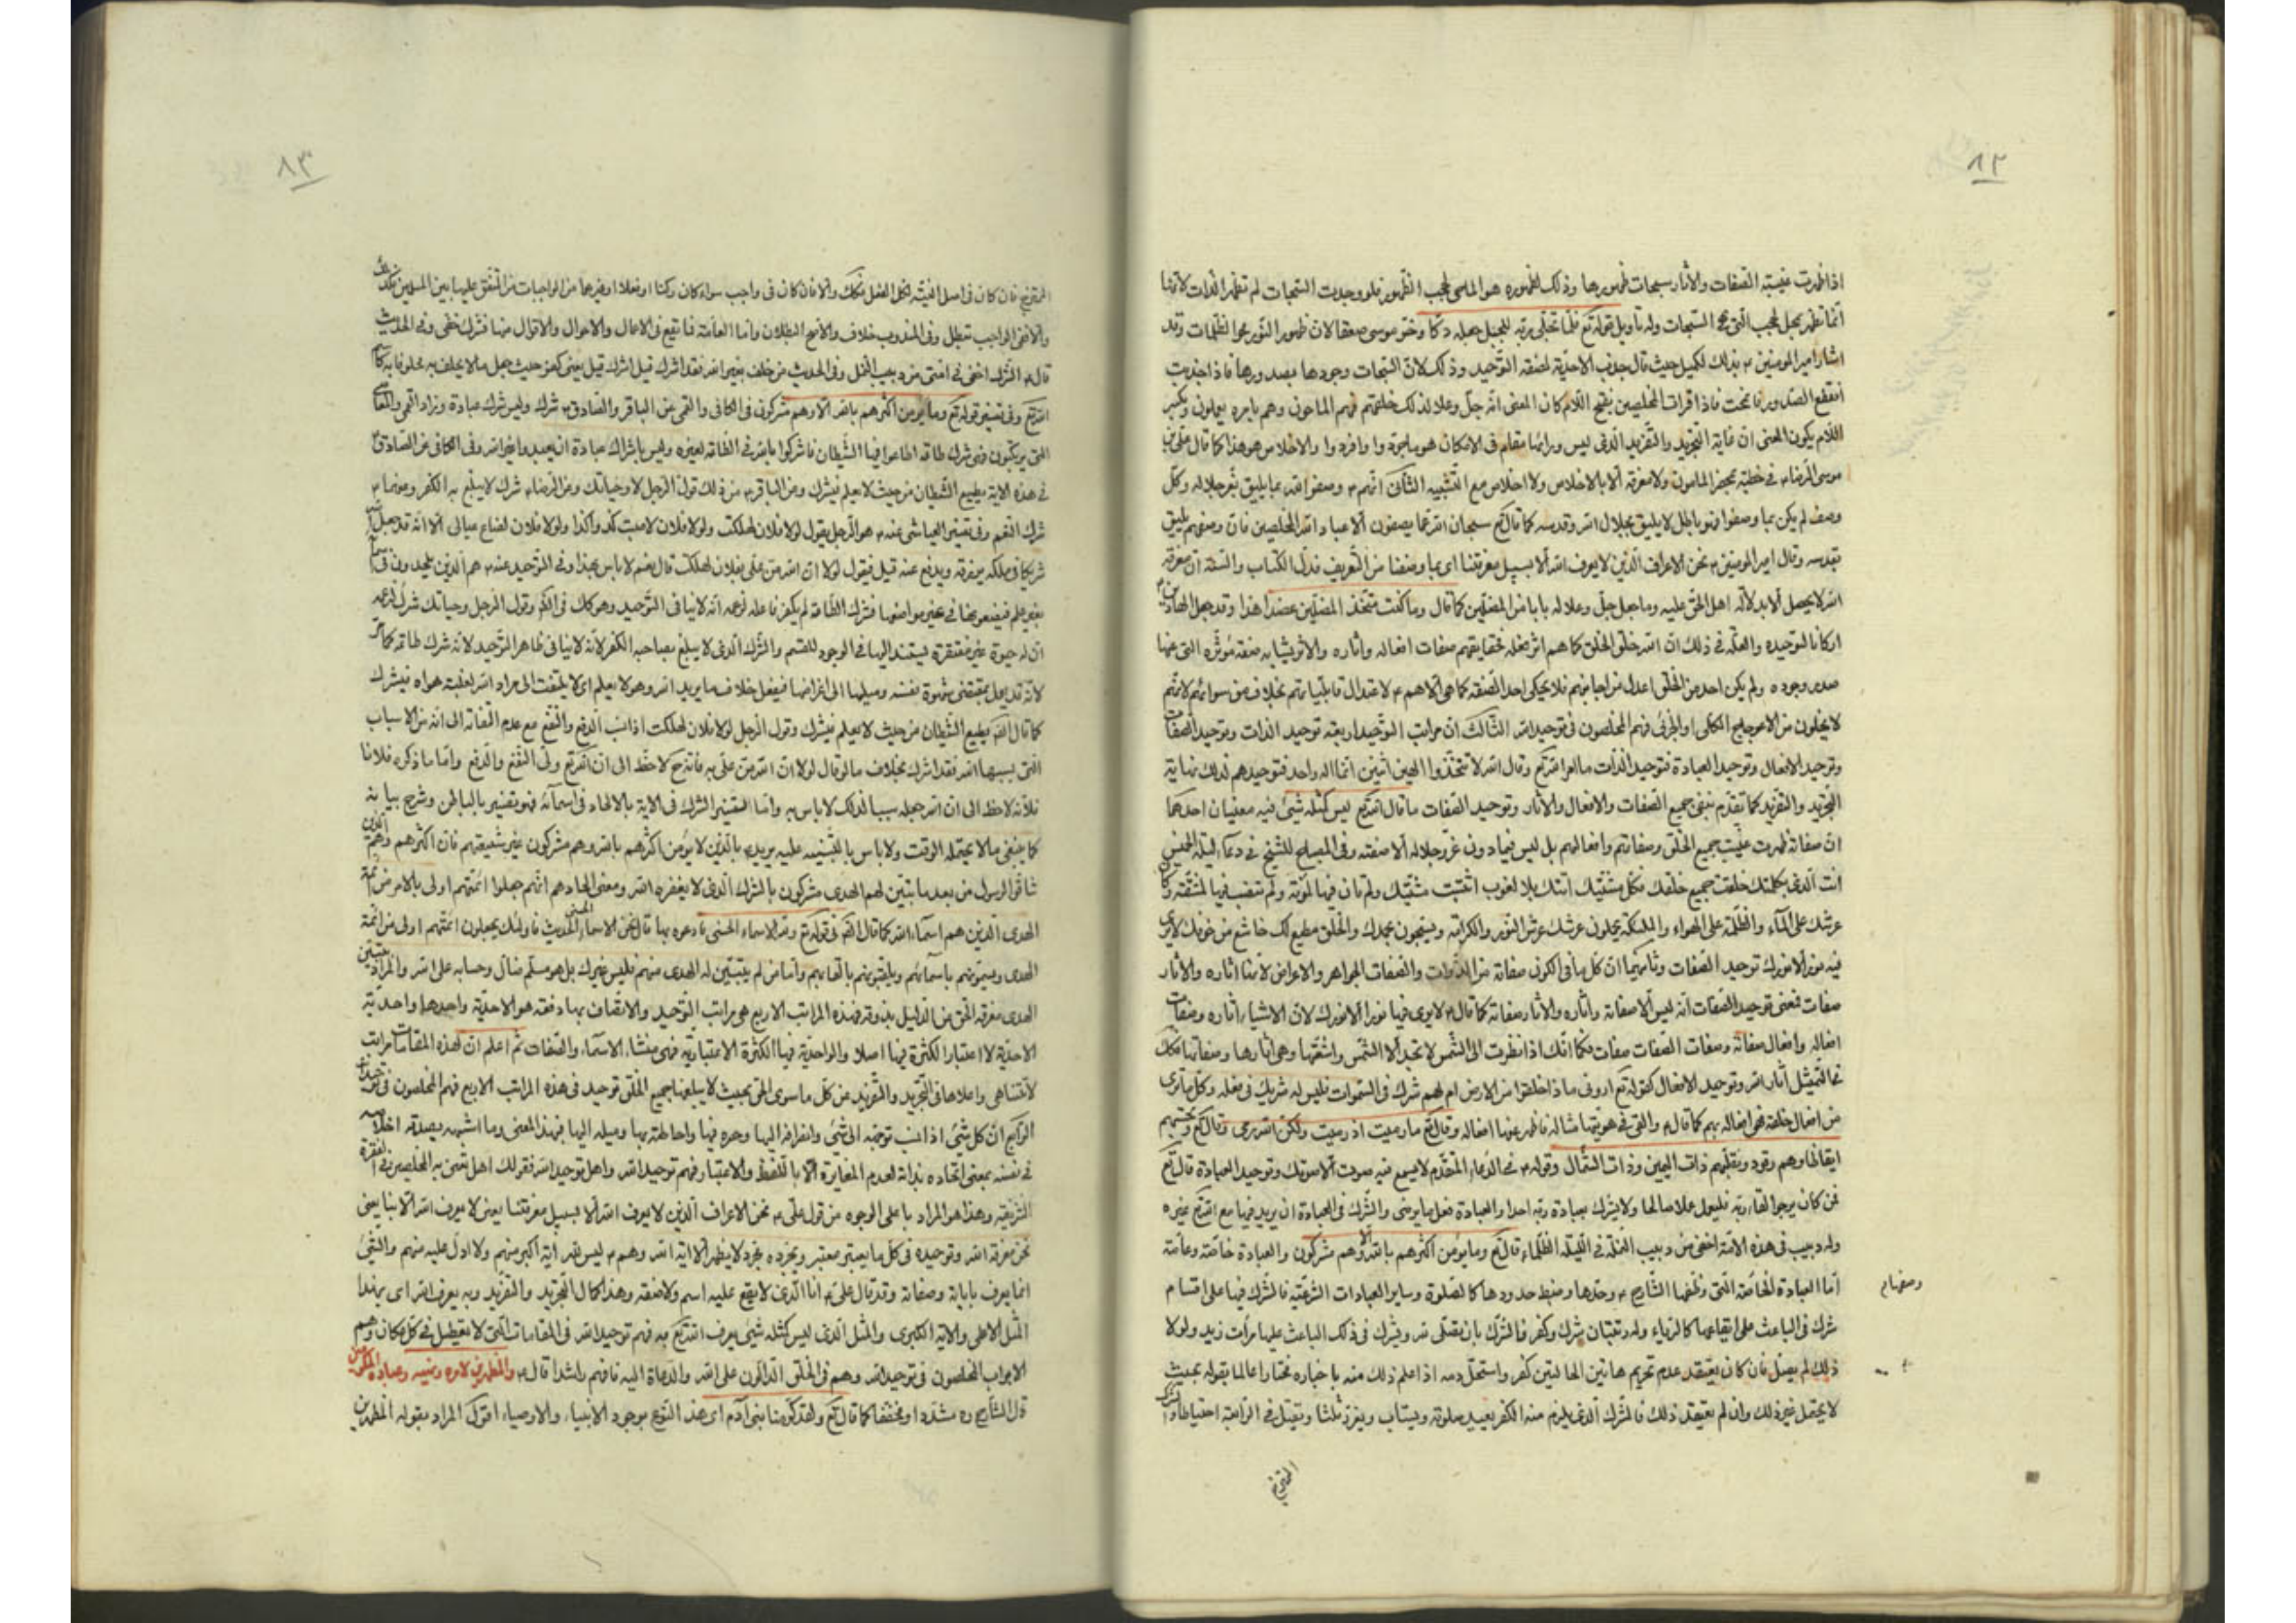 ٨٢
اذا ظهرت غيبته الصفات والاثار سبحات ظهورها وذلك الظهور هو الماحى لحجب الظهور فلو وجدت السبحات لم تظهر الذات لانها
انما تظهر بحجب السبحات وله تأويل قوله تع فلما تجلى ربه للجبل جعله دكا وخر موسى صعقا لان ظهور النور محو الظلمات وقد
اشار امير المومنين ع بذلك لكميل حيث قال جذب الاحدية لصفة التوحيد وذلك لان السبحات وجودها بصدورها فاذا جذبت
انقطع الصدور فانمحت فاذا قرات المخلصين بفتح اللام كان المعنى انه جل وعلا لذلك خلقهم فهم الماحون وهم بامره يعملون وبكسر
اللام يكون المعنى ان غاية التجريد والتفريد الذى ليس وراءها مقام فى الامكان هو ما جردوا وافردوا والاخلاص هو هذا كما قال على بن
موسى الرضا ع فى خطبته بمحضر المامون ولا معرفة الا بالاخلاص ولا اخلاص مع التشبيه الثانى انهم ع وصفوا الله بما يليق بعز جلاله وكل
وصف لم يكن بما وصفوا فهو باطل لا يليق بجلال الله وقدسه كما قال تع سبحان الله عما يصفون الا عباد الله المخلصين فان وصفهم يليق
بقدسه وقال امير المومنين ع نحن الاعراف الذين لا يعرف الله الا بسبيل معرفتنا اى بما وصفنا من التعريف فدل الكتاب والسنة ان معرفة
الله لا يحصل الا بدلالة اهل الحق عليه وما جعل جل وعلا له بابا من المضلين كما قال وما كنت متخذ المضلين عضدا هذا وقد جعل الهادين
اركانا لتوحيده والعلة فى ذلك ان الله خلق الخلق كما هم اثر فعله فحقايقهم صفات افعاله واثاره والاثر يشابه صفة مؤثره التى عنها
صدر وجوده ولم يكن احد من الخلق اعدل مزاجا منهم فلا يحكى احد الصفة كما هى الا هم ع لاعتدال قابلياتهم بخلاف من سوائهم لانهم
لا يخلون من الاعوجاج الكلى او الجزئى فهم المخلصون فى توحيد الله الثالث ان مراتب التوحيد اربعة توحيد الذات وتوحيد الصفات
وتوحيد الافعال وتوحيد العبادة فتوحيد الذات ما امر الله تع وقال الله لا تتخذوا الهين اثنين انما اله واحد فتوحيدهم لذلك نهاية
التجريد والتفريد كما تقدم بنفى جميع الصفات والافعال والاثار وتوحيد الصفات ما قال الله تع ليس كمثله شئ فيه معنيان احدهما
ان صفاته ظهرت غيبت جميع الخلق وصفاتهم وافعالهم بل ليس فيما دون عز جلاله الا صفته وفى المصباح للشيخ فى دعاء ليلة الخميس
انت الذى بكلمتك خلقت جميع خلقك فكل مشيتك اتتك بلا لغوب اثبت مشيتك ولم تان فيها لمؤنة ولم تنصب فيها لمشقة وكان
عرشك على الماء والظلمة على الهواء والملئكة يحملون عرشك عرش النور والكرامة ويسبحون بحمدك والخلق مطيع لك خاشع من خوفك لا يرى
فيه نور الا نورك توحيد الصفات وثانيهما ان كل ما فى الكون صفاته من الذوات والصفات الجواهر والاعراض لانها اثاره والاثار
صفات فمعنى توحيد الصفات انه ليس الا صفاته واثاره والاثار صفاته كما قال ع لا يرى فيها نورا الا نورك لان الاشياء اثاره وصفات
افعاله وافعال صفاته وصفات الصفات صفات فكما انك اذا نظرت الى الشمس لا تجد الا الشمس واشعتها وهى اثارها وصفاتها فكك
فما التمثيل اثار الله وتوحيد الافعال كقوله تع ارونى ما ذا خلقوا من الارض ام لهم شرك فى السموات فليس له شريك فى فعله وكل ما ترى
من افعال خلقه فهى افعاله بهم كما قال ع والقى فى هويتها مثاله فاظهر عنها افعاله وقال تع وما رميت اذ رميت ولكن الله رمى وقال تع وتحسبهم
ايقاظا وهم رقود ونقلبهم ذات اليمين وذات الشمال وقوله ع فى الدعاء المتقدم لا يسمع فيه صوت الا صوتك وتوحيد العبادة قال تع
فمن كان يرجو لقاء ربه فليعمل عملا صالحا ولا يشرك بعبادة ربه احدا والعبادة فعل ما يرضى والشرك فى العبادة ان يريد فيها مع الله تع غيره
وله دبيب فى هذه الامة اخفى من دبيب النملة فى الليلة الظلماء قال تع وما يؤمن اكثرهم بالله الا وهم مشركون والعبادة خاصة وعامة
اما العبادة الخاصة التى وظفها الشارع ع وحدها وضبط حدودها كالصلوة وساير العبادات الشرعية فالشرك فيها على اقسام
شرك فى الباعث على ايقاعها كالرياء وله رتبتان شرك وكفر فالشرك بان يصلى لله ويشرك فى ذلك الباعث عليها مرآت زيد ولولا
ذلك لم يصل فان كان يعتقد عدم تحريم هاتين الحالتين كفر واستحل دمه اذا علم ذلك منه باخباره مختارا عالما بقوله بحيث
لا يحتمل غير ذلك وان لم يعتقد ذلك فالشرك الذى يلزم منه الكفر يعيد صلوته ويستاب ويعزر ثلثا ويقتل فى الرابعة احتياطا
٨٣
فان كان فى اصل النية لكل الفعل فكك والا فان كان فى واجب سواء كان ركنا او فعلا او غيرهما من الواجبات من المتفق عليها بين المسلمين فكذلك
والا ففى الواجب تبطل وفى المندوب خلاف والاصح البطلان واما العامة فما تقع فى الاعمال والاحوال والاقوال منها فشرك خفى وفى الحديث
قال ع الشرك اخفى فى امتى من دبيب النمل وفى الحديث من حلف بغير الله فقد اشرك قيل اشرك قيل يعنى كفر حيث جعل ما لا يحلف به محلوفا به كاسم
الله تع وفى تفسير قوله تع وما يؤمن اكثرهم بالله الا وهم مشركون فى الكافى والقمى عن الباقر والصادق ع شرك وليس شرك عبادة وزاد القمى والمعاصى
التى يرتكبون فهى شرك طاعة اطاعوا فيها الشيطان فاشركوا بالله فى الطاعة لغيره وليس باشراك عبادة ان يعبدوا غير الله وفى الكافى عن الصادق ع
فى هذه الاية يطيع الشيطان من حيث لا يعلم فيشرك وعن الباقر ع من ذلك قول الرجل لا وحياتك وعن الرضا ع شرك لا يبلغ به الكفر وعنهما ع
شرك النعم وفى تفسير العياشى عنه ع هو الرجل يقول لولا فلان لهلكت ولولا فلان لاصبت كذا وكذا ولولا فلان لضاع عيالى الا انه قد جعل لله
شريكا فى ملكه يرزقه ويدفع عنه قيل فيقول لولا ان الله من على بفلان لهلكت قال نعم لا باس بهذا وفى التوحيد عنه ع هم الذين يلحدون فى اسمائه
بغير علم فيضعونها فى غير مواضعها فشرك الطاعة لم يكفر فاعله لزعمه انه لا ينافى التوحيد وهو كك فى الكفر وقول الرجل وحياتك شرك لزعمه
ان له حيوة غير مفتقرة يستند اليها فى الوجود للقسم والشرك الذى لا يبلغ بصاحبه الكفر لانه لا ينافى ظاهر التوحيد لانه شرك طاعة كما مر
لانه قد يعمل بمقتضى شهوة نفسه وميلها الى اغراضها فيفعل خلاف ما يريد الله وهو لا يعلم اى لا يلتفت الى مراد الله لغلبة هواه فيشرك
كما قال الله يطيع الشيطان من حيث لا يعلم فيشرك وقول الرجل لولا فلان لهلكت اذا نسب الدفع والنفع مع عدم التفاته الى انه من الاسباب
التى يسببها الله فقد اشرك بخلاف ما لو قال لولا ان الله من على به فانه ح لاحظ الى ان الله تع ولى النفع والدفع واما ما ذكره فلانا
فلأنه لاحظ الى ان الله جعله سببا لذلك لا باس به واما تفسير الشرك فى الاية بالالحاد فى اسمائه فهو تفسير بالباطن وشرح بيانه
كما ينبغى مالا يحتمله الوقت ولا باس بالتنبيه عليه يريد ع بالذين لا يؤمن اكثرهم بالله وهم مشركون غير شيعتهم فان اكثرهم وهم الذين
شاقوا الرسول من بعد ما تبين لهم الهدى مشركون بالشرك الذى لا يغفره الله ومعنى الحادهم انهم جعلوا ائمتهم اولى بالامر من ائمة
الهدى الذين هم اسماء الله كما قال الله فى قوله تع ولله الاسماء الحسنى فادعوه بها قال نحن الاسماء الحسنى الحديث فاولئك يجعلون ائمتهم اولى من ائمة
الهدى ويسمونهم باسمائهم ويلقبونهم بالقابهم واما من لم يتبين له الهدى منهم فليس كذلك بل هو مسلم ضال وحسابه على الله والمراد بتبين
الهدى معرفة الحق من الدليل بذوقه فهذه المراتب الاربع هى مراتب التوحيد والاتصاف بها دفعة هو الاحدية واحدها واحدية
الاحدية لا اعتبارا لكثرة فيها اصلا والواحدية فيها الكثرة الاعتبارية فهى منشاء الاسماء والصفات ثم اعلم ان لهذه المقامات مراتب
لا تتناهى واعلاها فى التجريد والتفريد عن كل ما سوى الحق بحيث لا يبلغها جميع الخلق توحيد فى هذه المراتب الاربع فهم المخلصون فى توحيد الله
الرابع ان كل شئ اذا نسب توجهه الى شئ وانصرافه اليها وحده فيها واحاطته بها وميله اليها فهذا المعنى وما اشبهه يصدق اخلاصه
فى نفسه بمعنى اتحاده بذاته لعدم المغايرة الا باللفظ والاعتبار فهم توحيد الله واهل توحيد الله فقولك اهل تعنى به المخلصين فى الفقرة
الشريفة وهذا هو المراد باعلى الوجوه من قول على ع نحن الاعراف الذين لا يعرف الله الا بسبيل معرفتنا يعنى لا يعرف الله الا بنا يعنى
نحن معرفة الله وتوحيده فى كل ما يعتبر معتبر ويجرده مجرد لا يظهر الا اية الله وهم ع ليس لله اية اكبر منهم ولا ادل عليه منهم والشئ
انما يعرف باياته وصفاته وقد قال على ع انا الذى لا يقع عليه اسم ولا صفة وهذا كمال التجريد والتفريد وبه يعرف الله اى بهذا
المثل الاعلى والاية الكبرى والمثل الذى ليس كمثله شئ يعرف الله تع به فهم توحيد الله فى المقامات التى لا تعطيل فى كل مكان وهم
الابواب المخلصون فى توحيد الله وهم فى الخلق الدالون على الله والدعاة اليه فافهم راشدا قال ع والمظهرين لامر الله ونهيه وعباده المكرمين
قال الشارح ره مشددا ومخففا كما قال تع ولقد كرمنا بنى آدم اى هذا النوع بوجود الانبياء والاوصياء اقول المراد بقوله المظهرين